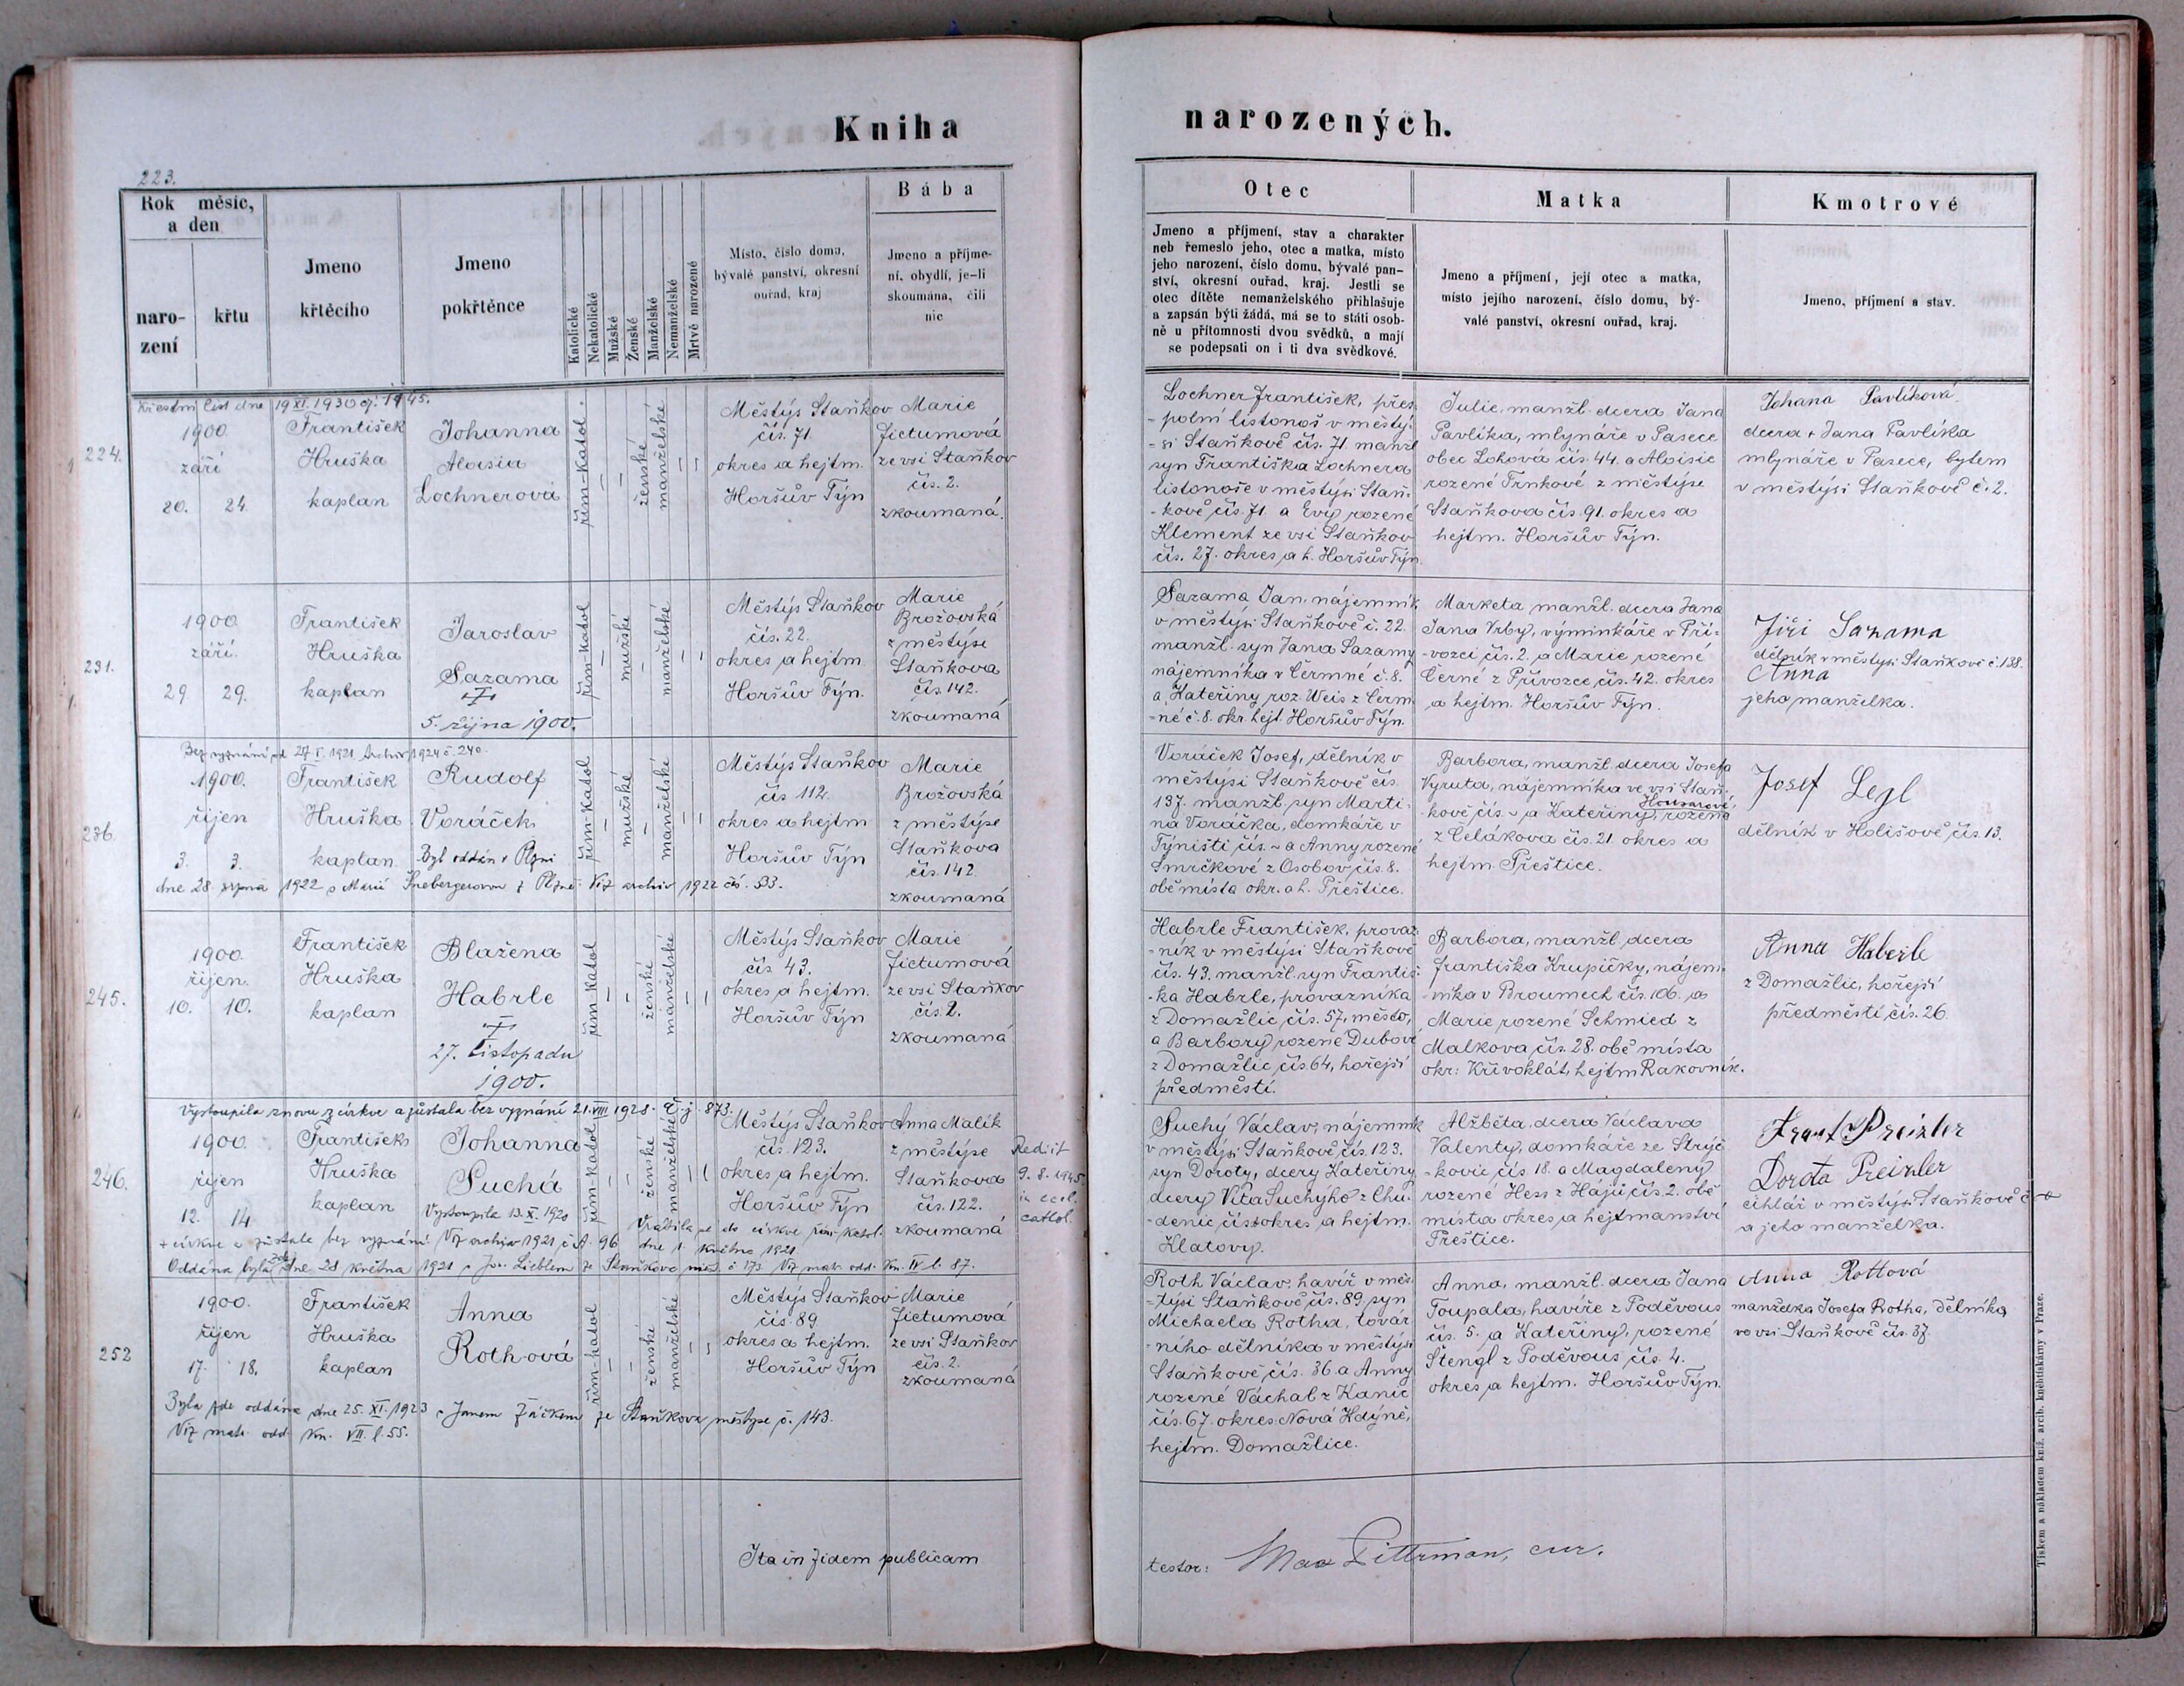 Kniha
narozených.
223.
Rok měsíc, a den
naro-
zení
křtu
Jmeno
křtěcího
Jmeno
pokřtěnce
Katolické
Nekatolické
Mužské
Ženské
Manželské
Nemanželské
Mrtvě narozené
Místo, číslo domu,
bývalé panství, okresní
ouřad, kraj
Bába
Jmeno a příjme-
ní, obydlí, je-li
skoumána, čili
nic
Otec
Jmeno a příjmení, stav a charakter
neb řemeslo jeho, otec a matka, místo
jeho narození, číslo domu, bývalé pan-
ství, okresní ouřad, kraj. Jestli se
otec dítěte nemanželského přihlašuje
a zapsán býti žádá, má se to státi osob-
ně u přítomnosti dvou svědků, a mají
se podepsati on i ti dva svědkové.
Matka
Jmeno a příjmení, její otec a matka,
místo jejího narození, číslo domu, bý-
valé panství, okresní ouřad, kraj.
Kmotrové
Jmeno, příjmení a stav.
Křestní list dne 19 XI. 1930 čj. 1145.
224.
1900.
září
20. 24.
František
Hruška
kaplan
Johanna
Aloisia
Lochnerová
řím-Katol.
ženské
manželské
Městýs Staňkov
čís. 71.
okres a hejtm.
Horšův Týn
Marie
Fictumová
ze vsi Staňkov
čís. 2.
zkoumaná.
Lochner František, přes-
-polní listonoš v městý-
-si Staňkově čís. 71. manžl
syn Františka Lochnera
listonoše v městýsi Staň-
-kově čís. 71. a Evy rozené
Klement ze vsi Staňkov
čís. 27. okres a h. Horšův Týn.
Julie, manžl. dcera Jana
Pavlíka, mlynáře v Pasece
obec Lohová čís. 44. a Aloisie
rozené Trnkové z městýse
Staňkova čís. 91. okres a
hejtm. Horšův Týn.
Johana Pavlíková
dcera + Jana Pavlíka
mlynáře v Pasece, bytem
v městýsi Staňkově č. 2.
231.
1900
září.
29 29.
František
Hruška
kaplan
Jaroslav
Sazama
5. října 1900.
řím-katol
mužské
manželské
Městýs Staňkov
čís. 22.
okres a hejtm.
Horšův Týn.
Marie
Brožovská
z městýse
Staňkova
čís. 142.
zkoumaná
Sazama Jan, nájemník
v městýsi Staňkově č. 22.
manžl. syn Jana Sazamy
nájemníka v Čermné č. 8.
a Kateřiny roz. Weis z Čerm-
-né č. 8. okr. hejt. Horšův Týn.
Marketa manžl. dcera Jana
Jana Vrby, výminkáře v Pří-
-vozci čís. 2. a Marie rozené
Černé z Přívozce, čís. 42. okres
a hejtm. Horšův Týn.
Jiří Sazama
dělník v městysi Staňkově č. 138.
Anna
jeho manželka.
Bez vyznání od 27. I. 1921. Archiv 1924 č. 240.
236.
1900.
říjen
3. 3.
František
Hruška
kaplan
Rudolf
Voráček
Byl oddán v Plzni
dne 28 srpna 1922 s Marií Šnebergerovou z Plzně. Viz archiv 1922 čís. 33.
řím-Katol
mužské
manželské
Městýs Staňkov
čís 112.
okres a hejtm
Horšův Týn
Marie
Brožovská
z městýse
Staňkova
čís. 142.
zkoumaná
Voráček Josef, dělník v
městýsi Staňkově čís.
137. manžl. syn Marti-
na Voráčka, domkáře v
Týništi čís. ~ a Anny rozené
Smrčkové z Osobov čís. 8.
obě místa okr. a h. Přeštice.
Barbora, manžl. dcera Josefa
Vyruta, nájemníka ve vsi Staň-
kově čís. ~ a Kateřiny, rozené
Housarové,
z Čelákova čís. 21. okres a
hejtm. Přeštice.
Josef Legl
dělník v Holišově čís. 13.
245.
1900.
říjen.
10. 10.
František
Hruška
kaplan
Blažena
Habrle
27. listopadu
1900.
řím katol
ženské
manželské
Městýs Staňkov
čís 43.
okres a hejtm.
Horšův Týn
Marie
Fictumová
ze vsi Staňkov
čís. 2.
zkoumaná
Habrle František, provaz-
-ník v městýsi Staňkově
čís. 43. manžl. syn Františ-
-ka Habrle, provazníka
z Domažlic čís. 57, město,
a Barbory rozené Dubové
z Domažlic čís. 64, hořejší
předměstí.
Barbora, manžl. dcera
Františka Krupičky, nájem-
-níka v Broumech čís. 106. a
Marie rozené Schmied z
Malkova čís. 28. obě místa
okr: Křivoklát, hejtm Rakovník.
Anna Haberle
z Domažlic, hořejší
předměstí čís. 26.
Vystoupila znovu z církve a zůstala bez vyznání 21. VIII 1928. č. j. 873.
246.
1900.
říjen
12. 14
František
Hruška
kaplan
Johanna
Suchá
Vystoupila 13. X. 1920
z církve a zůstala bez vyznání. Viz archiv 1921 č. A. 96. Vrátila se do církve řím-katol. dne 1. května 1921.
Oddána byla zde dne 28 května 1921 s Jos. Lieblem ze Staňkova měst. č 173 Viz matr. odd. Kn. IV l. 87.
řím-katol
ženské
manželské
Městýs Staňkov
čís. 123.
okres a hejtm.
Horšův Týn
Anna Malík
z městýse
Staňkova
čís. 122.
zkoumaná
Rediit
9. 8. 1945
in eccl.
cathol.
Suchý Václav, nájemník
v městýsi Staňkově čís. 123.
syn Doroty, dcery Kateřiny
dcery Víta Suchýho z Chu-
-denic, čís. okres a hejtm.
Klatovy.
Alžběta, dcera Václava
Valenty, domkáře ze Strýč-
-kovic čís 18. a Magdaleny
rozené Hess z Hájů čís. 2. obě
místa okres a hejtmanství
Přeštice.
Frant Preizler
Dorota Preizler
cihlář v městýsi Staňkově č
a jeho manželka.
252
1900.
říjen
17. 18.
František
Hruška
kaplan
Anna
Rothová
Byla zde oddána dne 25. XI. 1923 s Janem Žáčkem ze Staňkova městyse č. 143.
Viz matr. odd. Kn. VII. l. 55.
řím-katol
ženské
manželské
Městýs Staňkov
čís. 89
okres a hejtm.
Horšův Týn
Marie
Fictumová
ze vsi Staňkov
čís. 2.
zkoumaná
Roth Václav, havíř v měs-
-týsi Staňkově čís. 89. syn
Michaela Rotha, továr-
-ního dělníka v městýsi
Staňkově čís. 36 a Anny
rozené Váchal z Kanic
čís. 67. okres Nová Kdýně,
hejtm. Domažlice.
Anna, manžl. dcera Jana
Toupala, havíře z Poděvous
čís. 5. a Kateřiny, rozené
Štengl z Poděvous čís. 4.
okres a hejtm. Horšův Týn.
Anna Rottová
manželka Josefa Rotha, dělníka
ve vsi Staňkově čís. 37.
Ita in fidem publicam
testor: Max Pittrman, cur.
Tiskem a nákladem kníž. arcib. knihtiskárny v Praze.